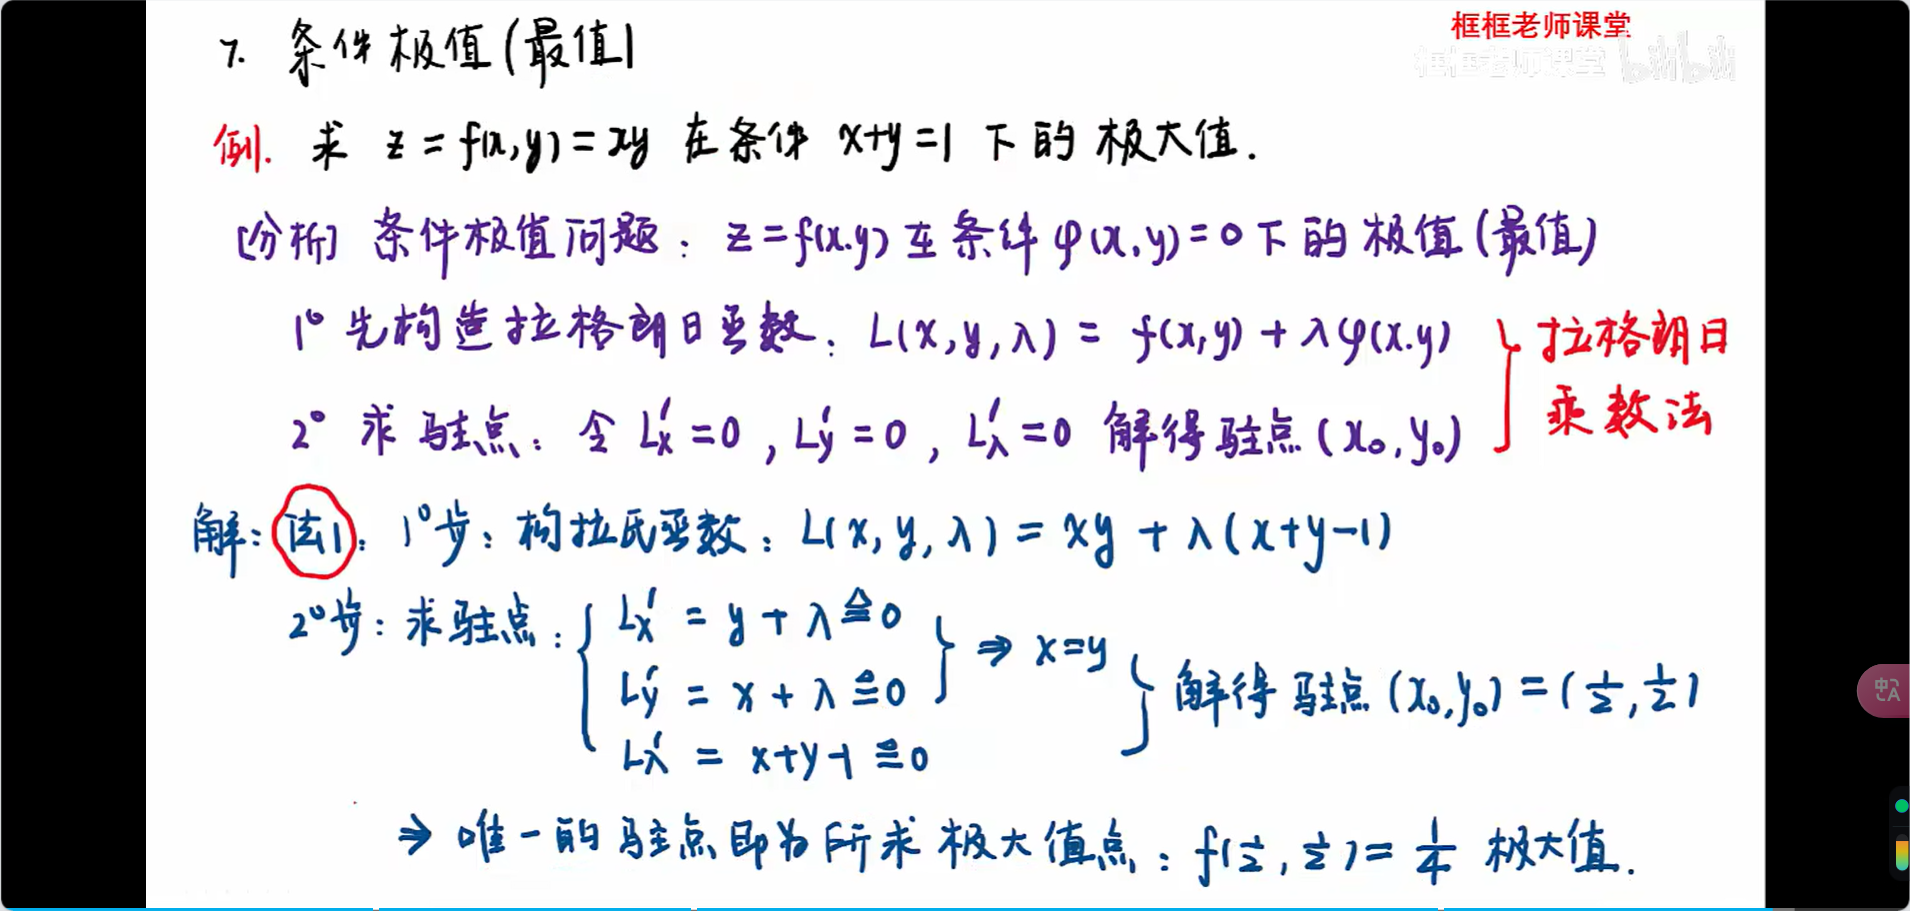 框框老师课堂
框框老师课堂 bilibili
7. 条件极值(最值)
例. 求 z = f(x,y) = xy 在条件 x+y=1 下的极大值.
[分析] 条件极值问题: z=f(x,y) 在条件 φ(x,y)=0 下的极值(最值)
1° 先构造拉格朗日函数: L(x,y,λ) = f(x,y) + λφ(x,y)
2° 求驻点: 令 L'x=0, L'y=0, L'λ=0 解得驻点(x₀,y₀)
拉格朗日
乘数法
解: 法1: 1°步: 构拉氏函数: L(x,y,λ) = xy + λ(x+y-1)
2°步: 求驻点: L'x = y + λ ≜ 0
L'y = x + λ ≜ 0
⇒ x=y
L'λ = x+y-1 ≜ 0
解得驻点(x₀,y₀) = (1/2, 1/2)
⇒ 唯一的驻点即为所求极大值点: f(1/2, 1/2) = 1/4 极大值.
中A